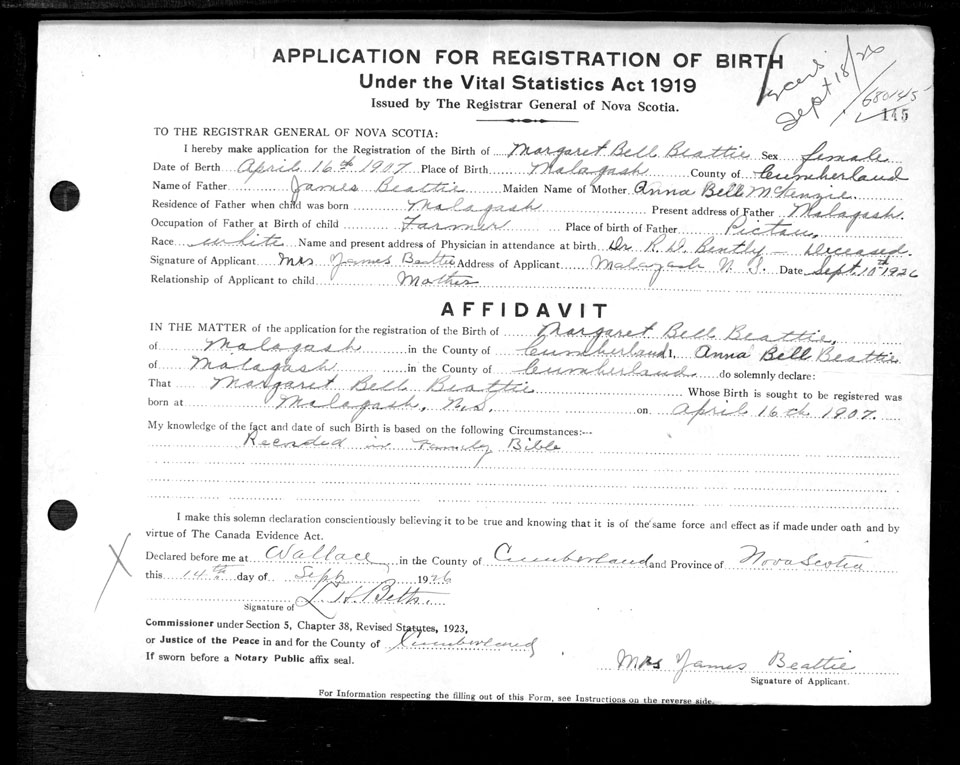 APPLICATION FOR REGISTRATION OF BIRTH
Under the Vital Statistics Act 1919
Issued by The Registrar General of Nova Scotia.
Sept 18/26
680145
145
TO THE REGISTRAR GENERAL OF NOVA SCOTIA:
I hereby make application for the Registration of the Birth of Margaret Bell Beattie Sex female
Date of Berth April 16th 1907 Place of Birth Malagash County of Cumberland
Name of Father James Beattie Maiden Name of Mother Anna Bell McKenzie.
Residence of Father when child was born Malagash Present address of Father Malagash.
Occupation of Father at Birth of child Farmer Place of birth of Father Pictou,
Race white Name and present address of Physician in attendance at birth Dr R. D. Bently – Deceased.
Signature of Applicant Mrs James Beattie Address of Applicant Malagash N. S. Date Sept. 10th 1926
Relationship of Applicant to child Mother
AFFIDAVIT
IN THE MATTER of the application for the registration of the Birth of Margaret Bell Beattie,
of Malagash in the County of Cumberland1, Anna Bell Beattie
of Malagash in the County of Cumberland do solemnly declare:
That Margaret Bell Beattie Whose Birth is sought to be registered was
born at Malagash, N.S. on April 16th 1907.
My knowledge of the fact and date of such Birth is based on the following Circumstances:--
Recorded in Family Bible
I make this solemn declaration conscientiously believing it to be true and knowing that it is of the same force and effect as if made under oath and by
virtue of The Canada Evidence Act.
Declared before me at Wallace in the County of Cumberland and Province of Nova Scotia
X this 14th day of Sept 1926
L H Betts.
Signature of
Commissioner under Section 5, Chapter 38, Revised Statutes, 1923,
or Justice of the Peace in and for the County of Cumberland
If sworn before a Notary Public affix seal.
Mrs James Beattie
Signature of Applicant.
For Information respecting the filling out of this Form, see Instructions on the reverse side.